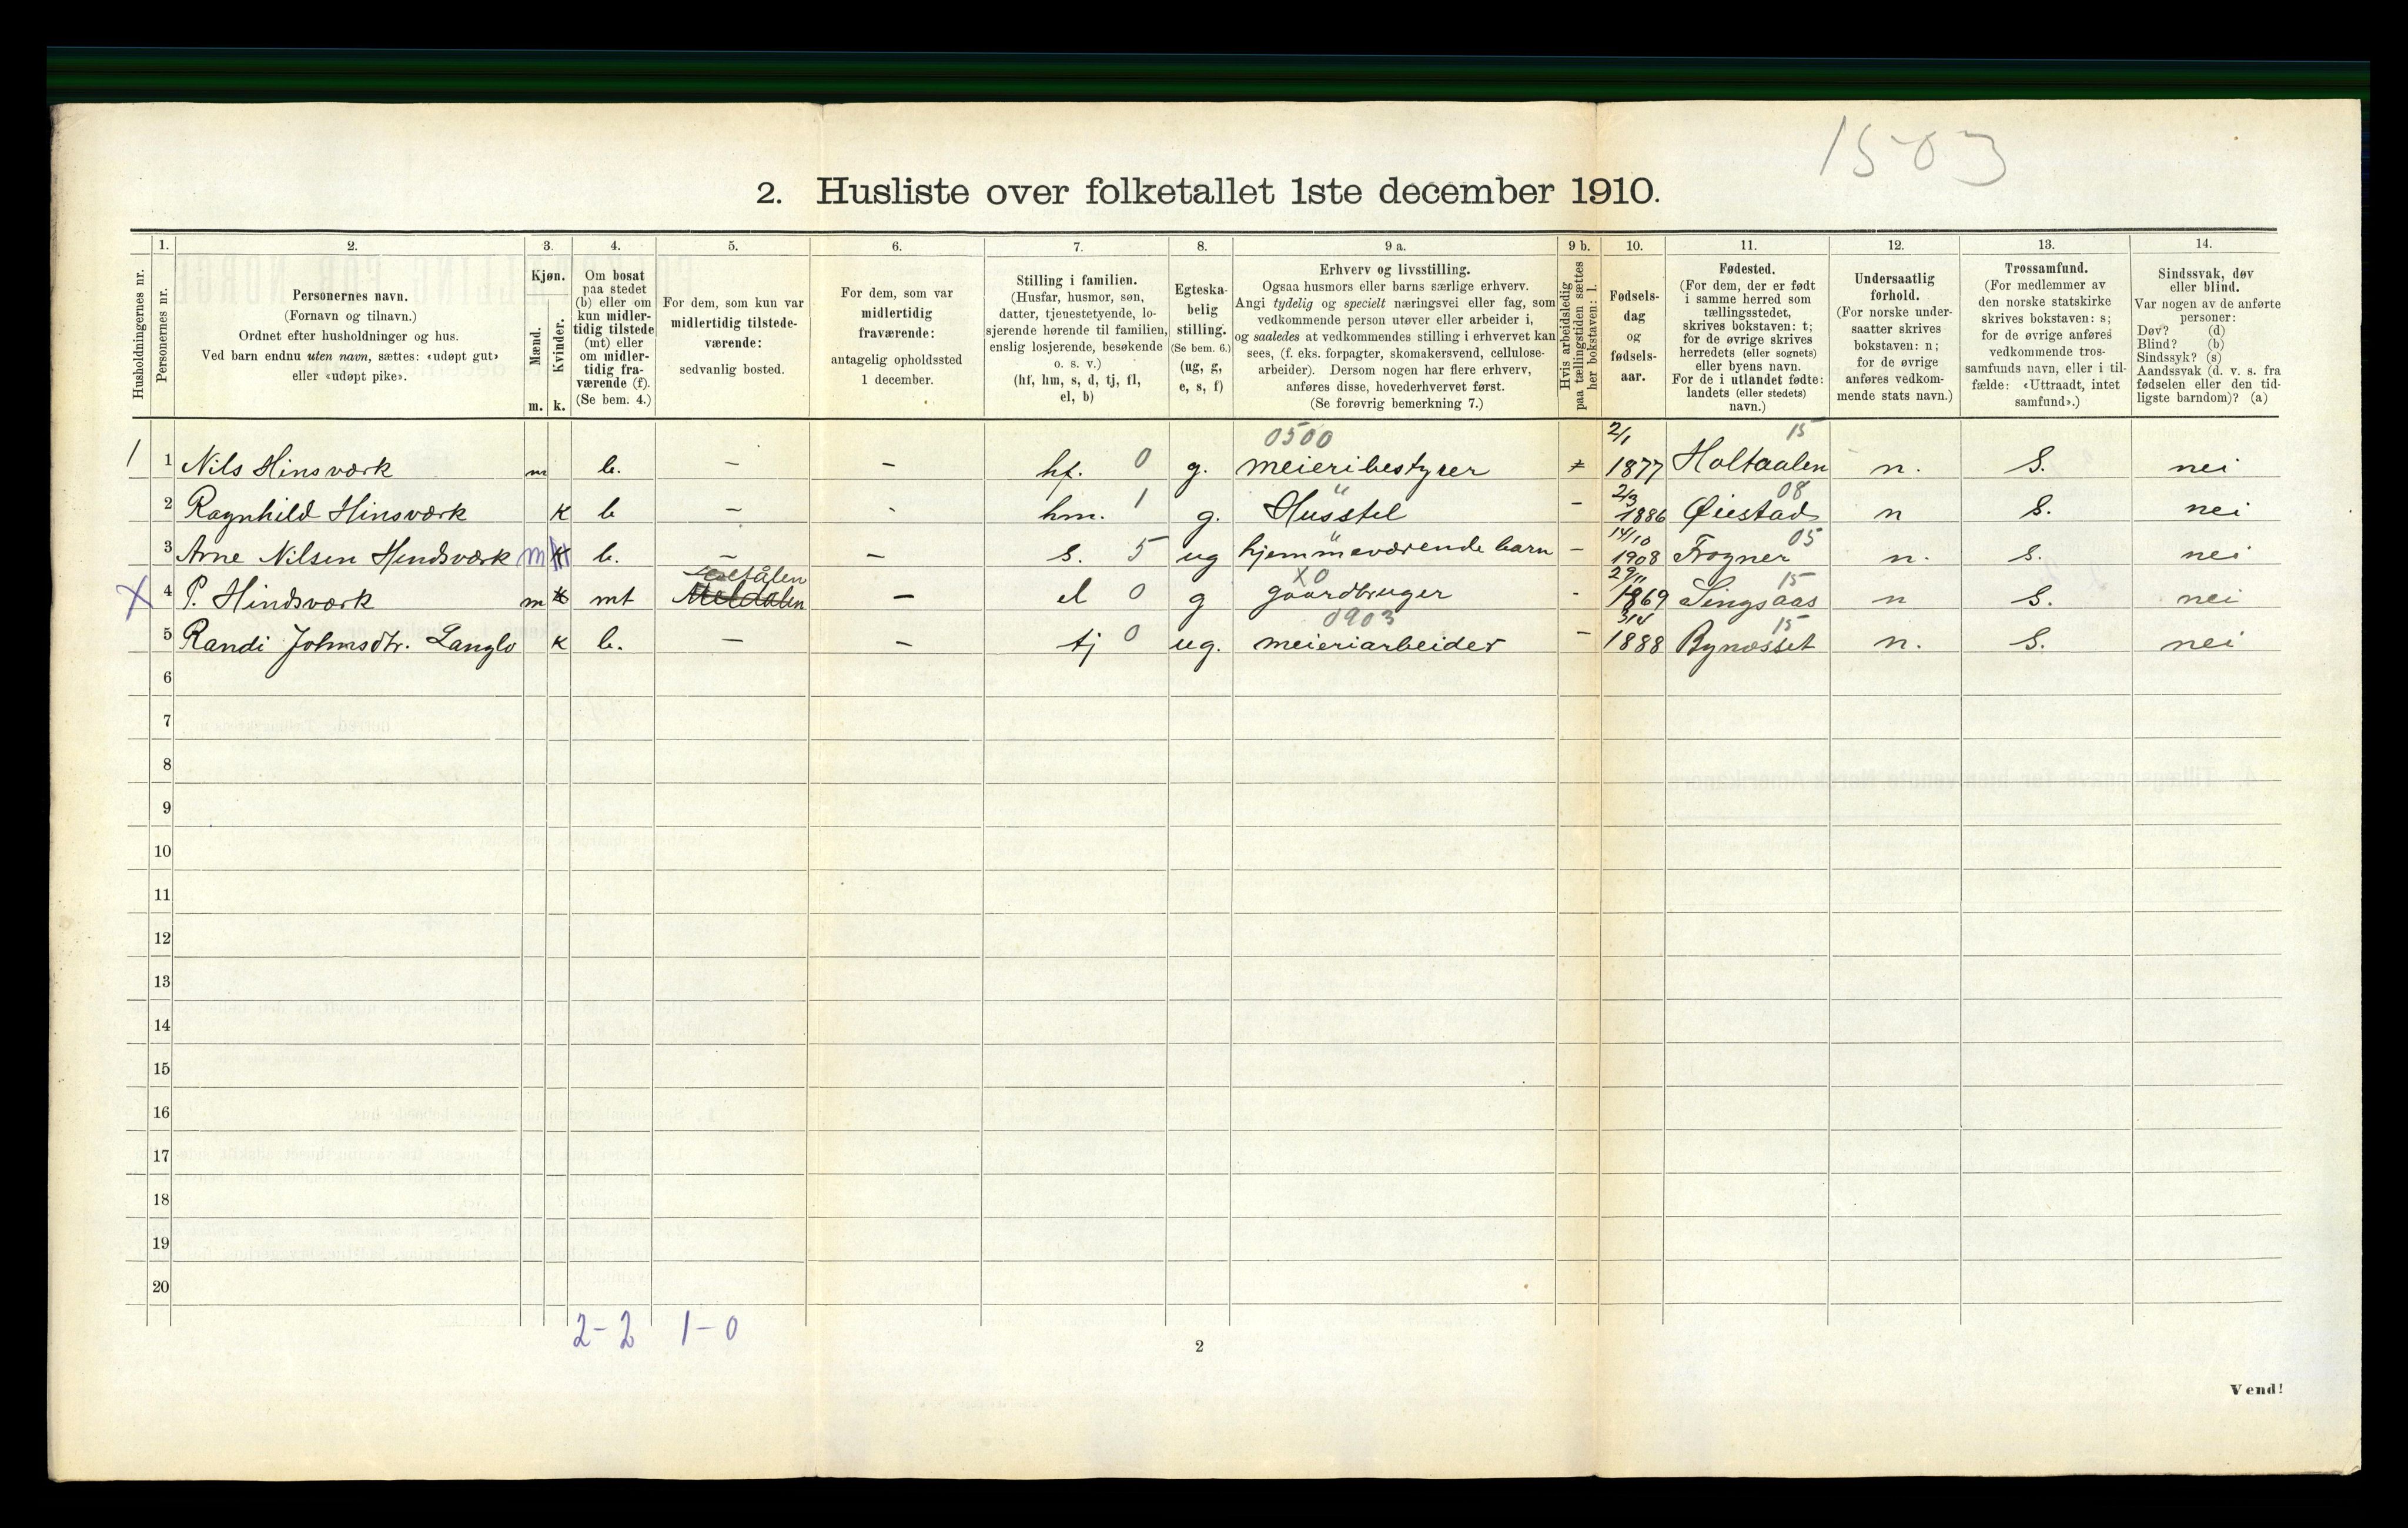 1503
2. Husliste over folketallet 1ste december 1910.
Husholdningernes nr.
1. Personernes nr.
2. Personernes navn.
(Fornavn og tilnavn.)
Ordnet efter husholdninger og hus.
Ved barn endnu uten navn, sættes: «udøpt gut»
eller «udøpt pike».
3. Kjøn.
Mænd. Kvinder.
m. k.
4. Om bosat
paa stedet
(b) eller om
kun midler-
tidig tilstede
(mt) eller
om midler-
tidig fra-
værende (f).
(Se bem. 4.)
5. For dem, som kun var
midlertidig tilstede-
værende:
sedvanlig bosted.
6. For dem, som var
midlertidig
fraværende:
antagelig opholdssted
1 december.
7. Stilling i familien.
(Husfar, husmor, søn,
datter, tjenestetyende, lo-
sjerende hørende til familien,
enslig losjerende, besøkende
o. s. v.)
(hf, hm, s, d, tj, fl,
el, b)
8. Egteska-
belig
stilling.
(Se bem. 6.)
(ug, g,
e, s, f)
9 a. Erhverv og livsstilling.
Ogsaa husmors eller barns særlige erhverv.
Angi tydelig og specielt næringsvei eller fag, som
vedkommende person utøver eller arbeider i,
og saaledes at vedkommendes stilling i erhvervet kan
sees, (f. eks. forpagter, skomakersvend, cellulose-
arbeider). Dersom nogen har flere erhverv,
anføres disse, hovederhvervet først.
(Se forøvrig bemerkning 7.)
9 b. Hvis arbeidsledig
paa tællingstiden sættes
her bokstaven: l.
10. Fødsels-
dag
og
fødsels-
aar.
11. Fødested.
(For dem, der er født
i samme herred som
tællingsstedet,
skrives bokstaven: t;
for de øvrige skrives
herredets (eller sognets)
eller byens navn.
For de i utlandet fødte:
landets (eller stedets)
navn.)
12. Undersaatlig
forhold.
(For norske under-
saatter skrives
bokstaven: n;
for de øvrige
anføres vedkom-
mende stats navn.)
13. Trossamfund.
(For medlemmer av
den norske statskirke
skrives bokstaven: s;
for de øvrige anføres
vedkommende tros-
samfunds navn, eller i til-
fælde: «Uttraadt, intet
samfund».)
14. Sindssvak, døv
eller blind.
Var nogen av de anførte
personer:
Døv? (d)
Blind? (b)
Sindssyk? (s)
Aandssvak (d. v. s. fra
fødselen eller den tid-
ligste barndom)? (a)
0500 2/1 15
1 1 Nils Hinsværk m b. – – hf. 0 g. meieribestyrer 1877 Holtaalen n. S. nei
" 2/3 08
2 Ragnhild Hinsværk k b – - hm. 1 g. Husstel – 1886 Øiestad n S. nei
" 14/10 05
3 Arne Nilsen Hendsværk m b. – – s. 5 ug hjemmeværende barn – 1908 Frogner n. S. nei
X0 29/11 15
X 4 P. Hindsværk m k mt Meldalen – el 0 g gaardbruger - 1869 Singsaas n S. nei
0903 15
5 Randi Johnsdtr. Langlo k b. – – tj 0 ug. meieriarbeider – 1888 Bynæsset n. S. nei
6
7
8
9
10
11
12
13
14
15
16
17
18
19
20
2-2 1-0
2
Vend!